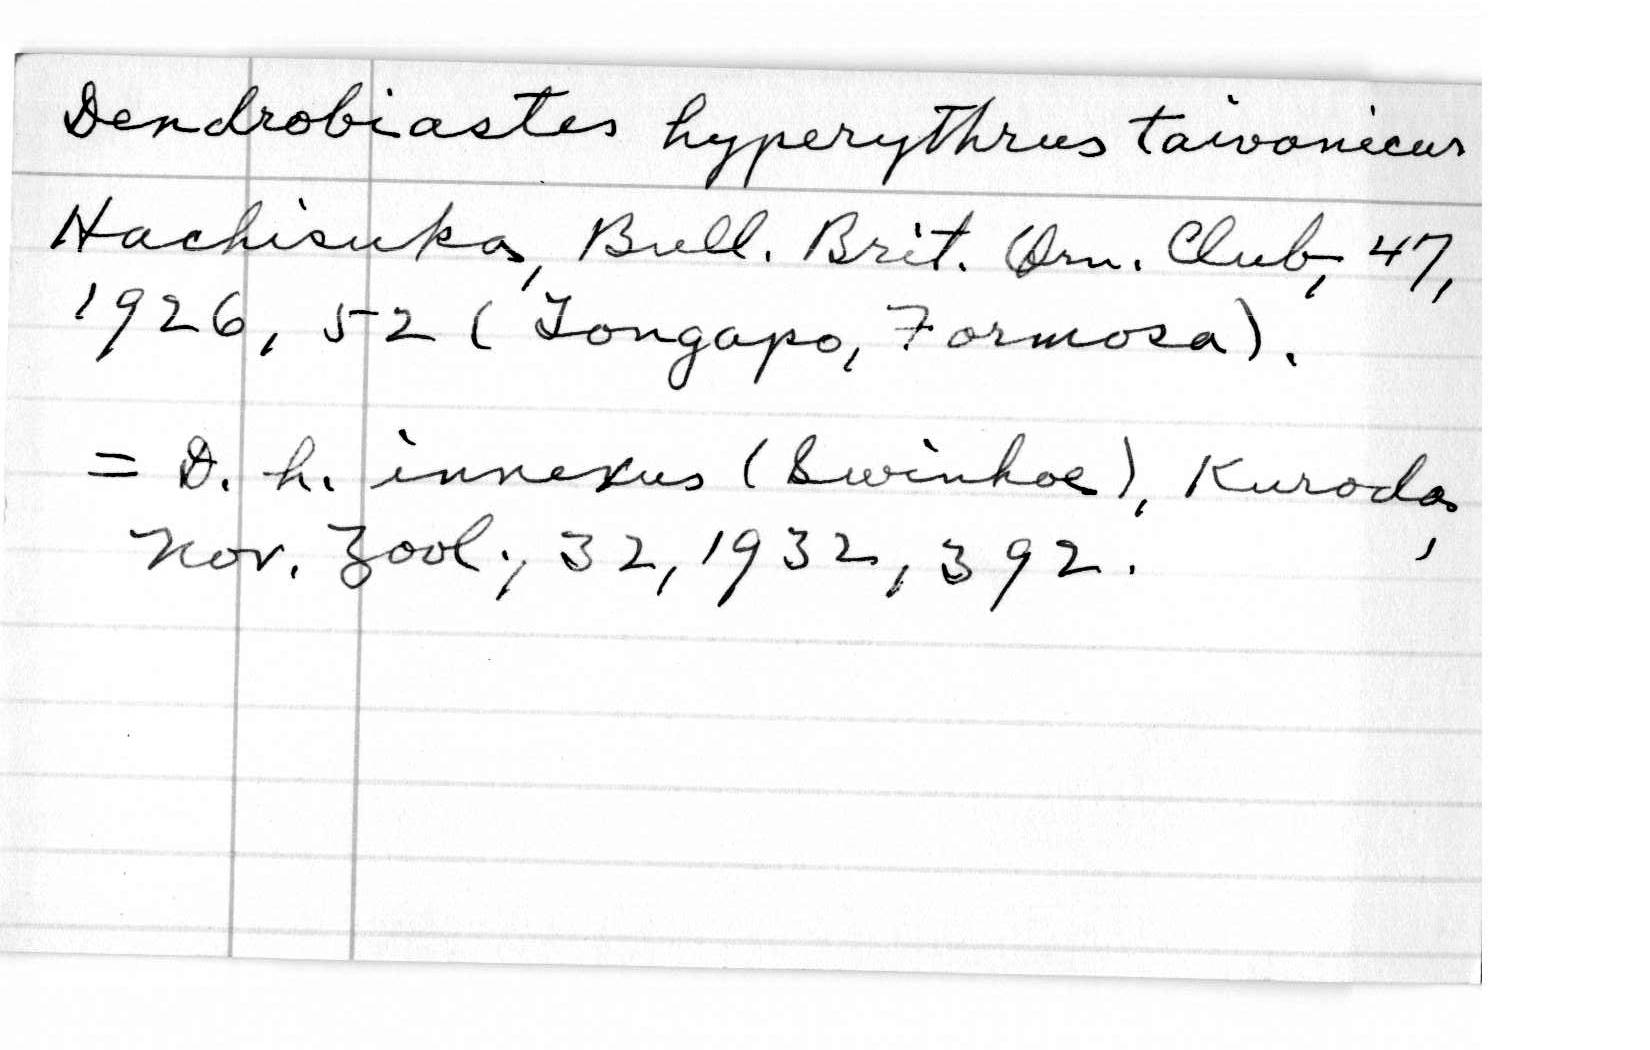 Dendrobiastes hyperythrus taivanicus
Hachisuka, Bull. Brit. Orn. Club, 47,
1926, 52 (Tongapo, Formosa).
= D. h. innexus (Swinhoe), Kuroda,
Nov. Zool., 32, 1932, 392.